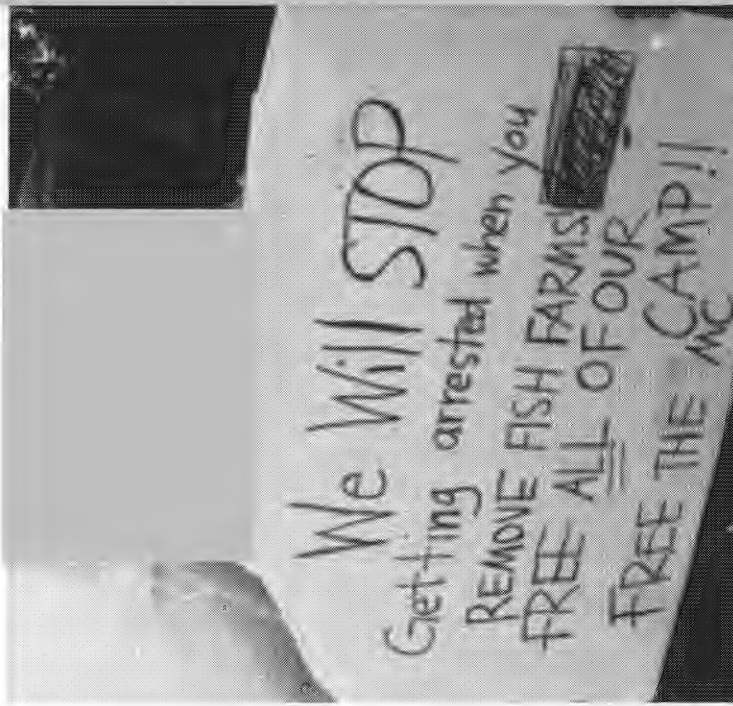 We Will STOP
Getting arrested when you
REMOVE FISH FARMS!
FREE ALL OF OUR
FREE THE CAMP!!